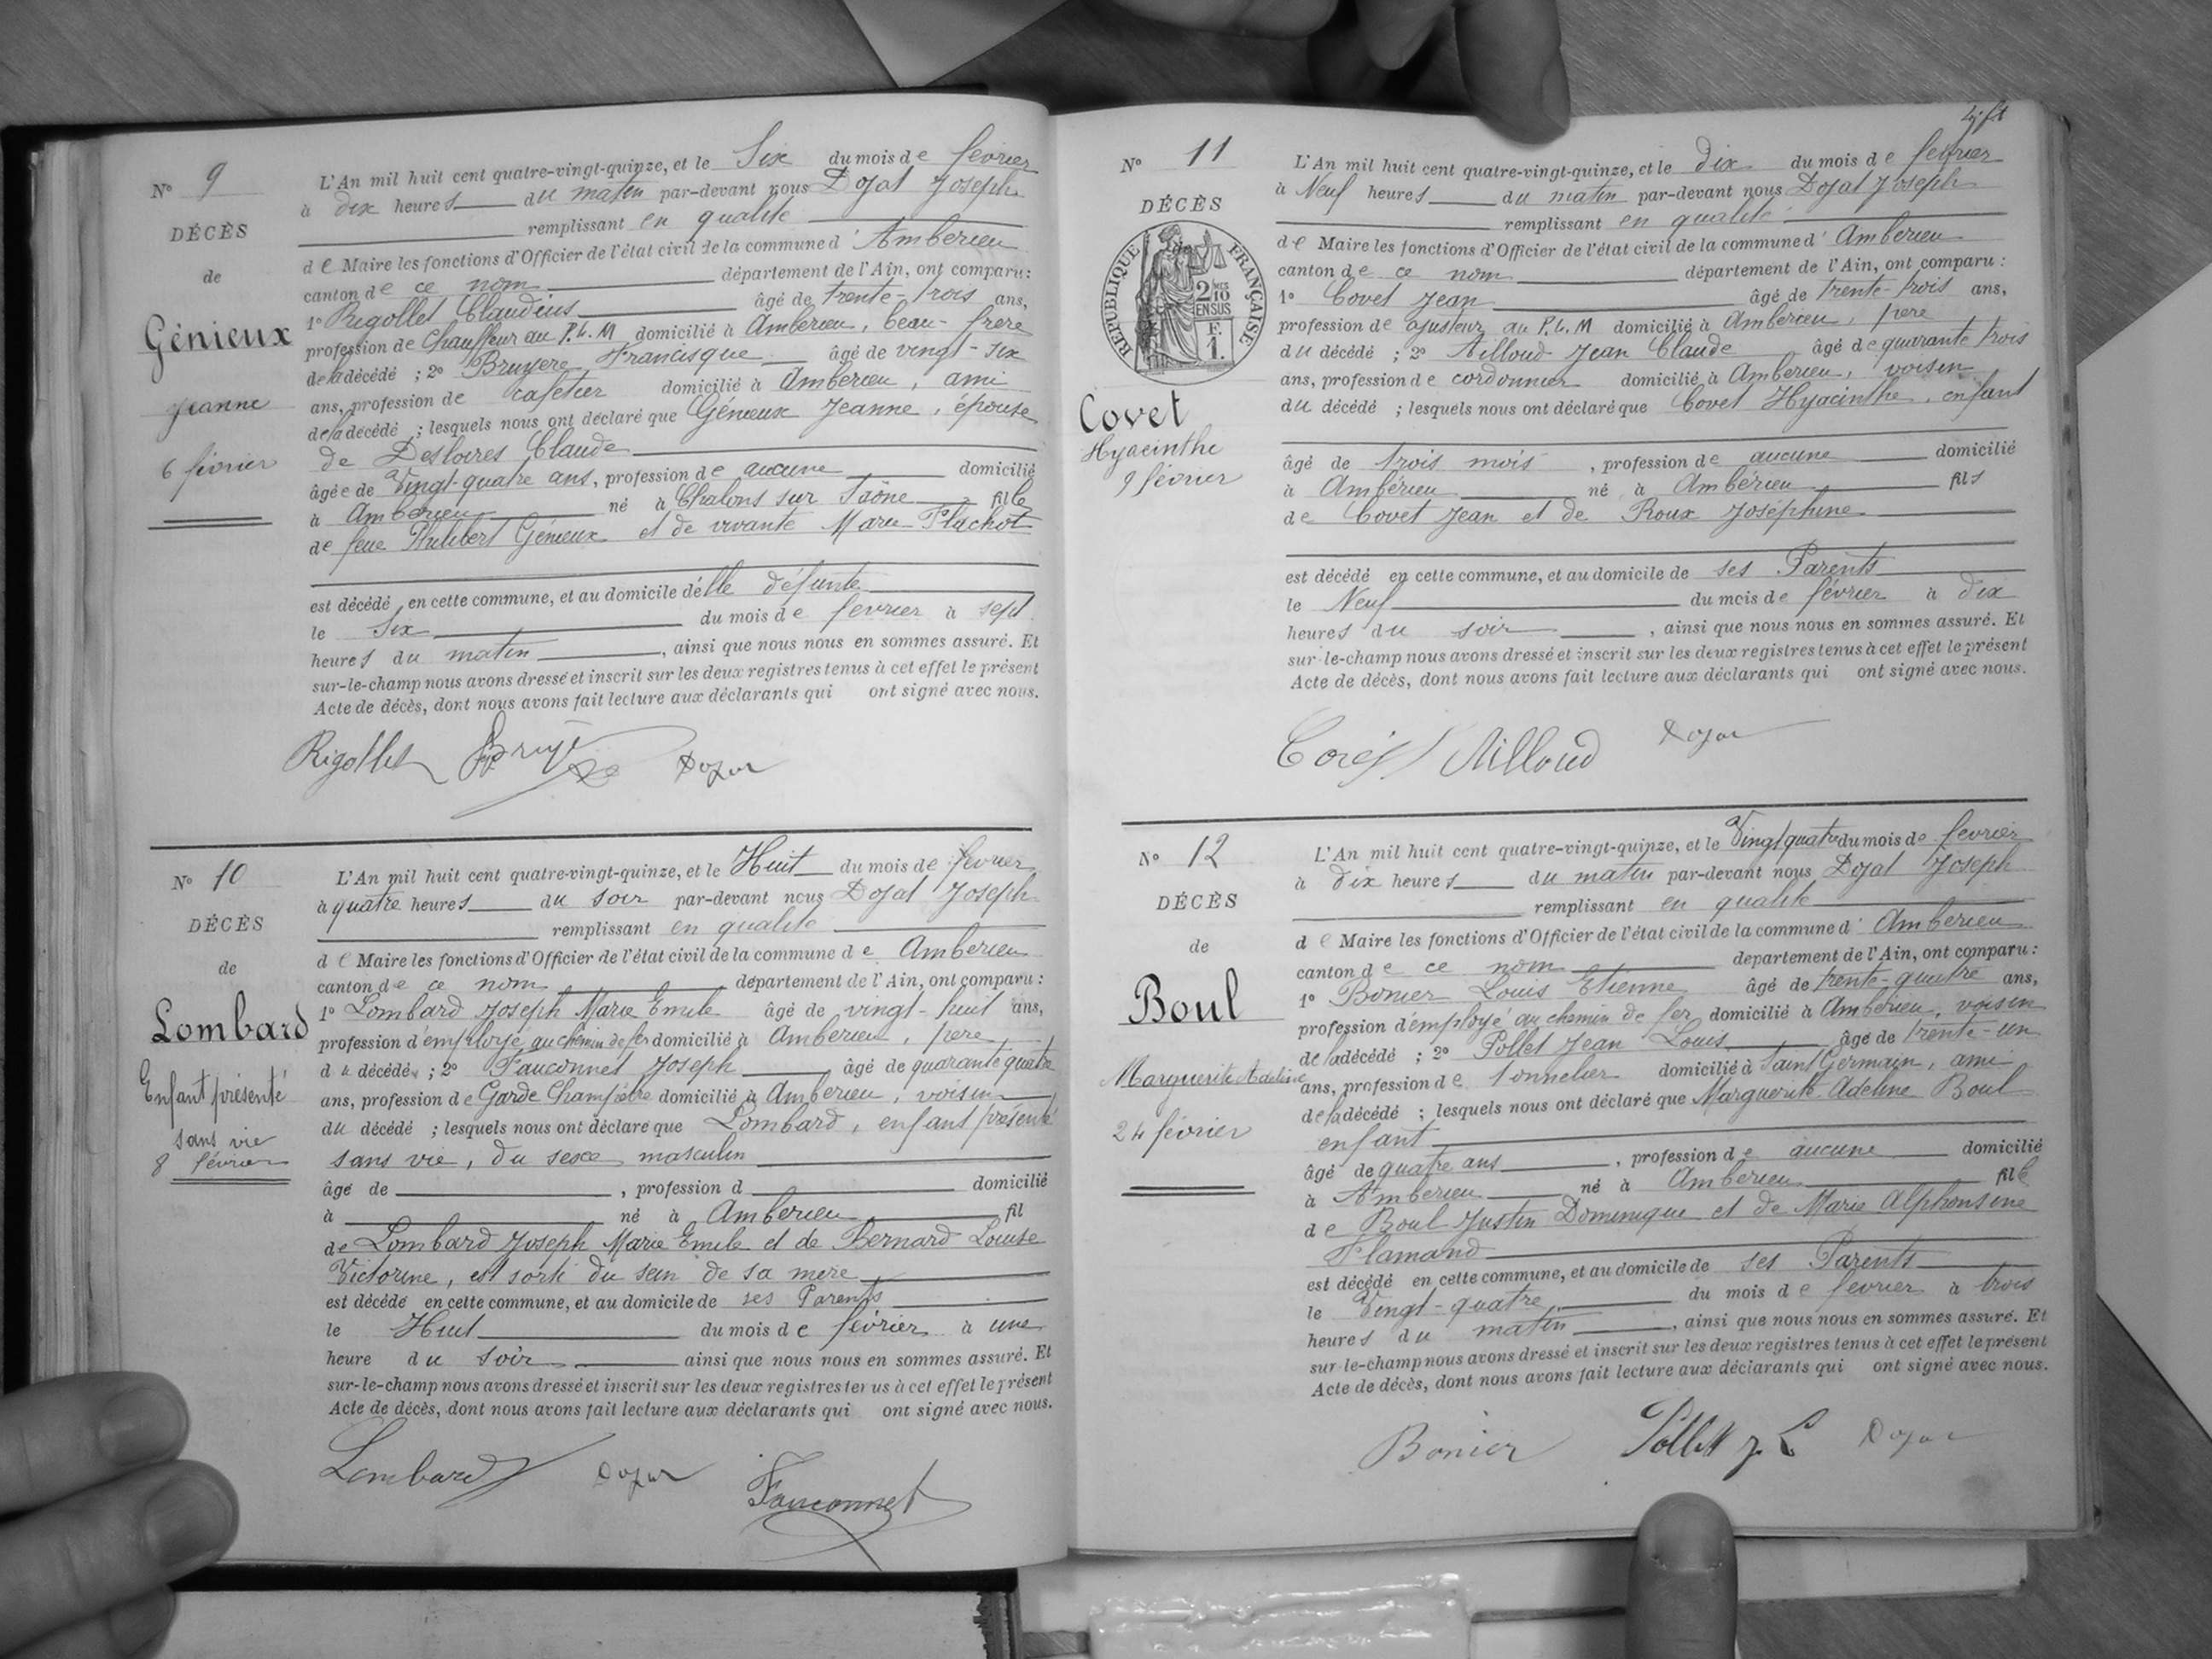 N° 9
DÉCÈS
de
Génieux
Jeanne
6 février
L'An mil huit cent quatre-vingt-quinze, et le Six du mois de fevrier
à dix heures du matin par-devant nous Dojat Joseph
remplissant en qualité
de Maire les fonctions d'Officier de l'état civil de la commune d'Amberieu
canton de ce nom département de l'Ain, ont comparu :
1° Rigollet Claudius âgé de trente-trois ans,
profession de Chauffeur au P.L.M domicilié à Amberieu, beau-frere
de la décédé ; 2° Bruyere Francisque âgé de vingt-six
ans, profession de cafetier domicilié à Amberieu, ami
de la décédé ; lesquels nous ont déclaré que Génieux Jeanne, épouse
de Desloires Claude
âgée de Vingt-quatre ans, profession de aucune domicilié
à Amberieu né à Chalons sur Saône fille
de feue Philibert Génieux et de vivante Marie Flachot
est décédé en cette commune, et au domicile d'elle défunte
le Six du mois de fevrier à sept
heures du matin, ainsi que nous nous en sommes assuré. Et
sur-le-champ nous avons dressé et inscrit sur les deux registres tenus à cet effet le présent
Acte de décès, dont nous avons fait lecture aux déclarants qui ont signé avec nous.
Rigollet Bruyere Dojat
N° 10
DÉCÈS
de
Lombard
Enfant présenté
sans vie
8 février
L'An mil huit cent quatre-vingt-quinze, et le Huit du mois de fevrier
à quatre heures du soir par-devant nous Dojat Joseph
remplissant en qualité
de Maire les fonctions d'Officier de l'état civil de la commune de Amberieu
canton de ce nom département de l'Ain, ont comparu :
1° Lombard Joseph Marie Emile âgé de vingt-huit ans,
profession d'employé au chemin de fer domicilié à Amberieu, pere
du décédé ; 2° Fauconnet Joseph âgé de quarante quatre
ans, profession de Garde Champêtre domicilié à Amberieu, voisin
du décédé ; lesquels nous ont déclaré que Lombard, enfant présenté
sans vie, du sexe masculin
âgé de , profession d domicilié
à né à Amberieu fil
de Lombard Joseph Marie Emile et de Bernard Louise
Victorine, est sorti du sein de sa mere
est décédé en cette commune, et au domicile de ses Parents
le Huit du mois de février à une
heure du soir ainsi que nous nous en sommes assuré. Et
sur-le-champ nous avons dressé et inscrit sur les deux registres tenus à cet effet le présent
Acte de décès, dont nous avons fait lecture aux déclarants qui ont signé avec nous.
Lombard Dojat Fauconnet
N° 11
DÉCÈS
RÉPUBLIQUE FRANÇAISE
2 /10 EN SUS
F. 1.
Covet
Hyacinthe
9 février
L'An mil huit cent quatre-vingt-quinze, et le dix du mois de fevrier
à Neuf heures du matin par-devant nous Dojat Joseph
remplissant en qualité
de Maire les fonctions d'Officier de l'état civil de la commune d'Amberieu
canton de ce nom département de l'Ain, ont comparu :
1° Covet Jean âgé de trente-trois ans,
profession de ajusteur au P.L.M domicilié à Amberieu, pere
du décédé ; 2° Ailloud Jean Claude âgé de quarante trois
ans, profession de cordonnier domicilié à Amberieu, voisin
du décédé ; lesquels nous ont déclaré que Covet Hyacinthe, enfant
âgé de trois mois, profession de aucune domicilié
à Ambérieu né à Ambérieu fils
de Covet Jean et de Roux Joséphine
est décédé en cette commune, et au domicile de ses Parents
le Neuf du mois de février à dix
heures du soir, ainsi que nous nous en sommes assuré. Et
sur-le-champ nous avons dressé et inscrit sur les deux registres tenus à cet effet le présent
Acte de décès, dont nous avons fait lecture aux déclarants qui ont signé avec nous.
Ailloud Dojat
N° 12
DÉCÈS
de
Boul
Marguerite Adeline
24 février
L'An mil huit cent quatre-vingt-quinze, et le Vingt quatre du mois de fevrier
à dix heures du matin par-devant nous Dojat Joseph
remplissant en qualité
de Maire les fonctions d'Officier de l'état civil de la commune d'Amberieu
canton de ce nom département de l'Ain, ont comparu :
1° Bonier Louis Etienne âgé de trente-quatre ans,
profession d'employé au chemin de fer domicilié à Amberieu, voisin
de la décédé ; 2° Pollet Jean Louis âgé de trente-un
ans, profession de tonnelier domicilié à Saint Germain, ami
de la décédé ; lesquels nous ont déclaré que Marguerite Adeline Boul
enfant
âgé de quatre ans, profession de aucune domicilié
à Amberieu né à Amberieu fille
de Boul Justin Dominique et de Marie Alphonsine
Flamand
est décédé en cette commune, et au domicile de ses Parents
le Vingt-quatre du mois de fevrier à trois
heures du matin, ainsi que nous nous en sommes assuré. Et
sur-le-champ nous avons dressé et inscrit sur les deux registres tenus à cet effet le présent
Acte de décès, dont nous avons fait lecture aux déclarants qui ont signé avec nous.
Bonier Pollet J L Dojat